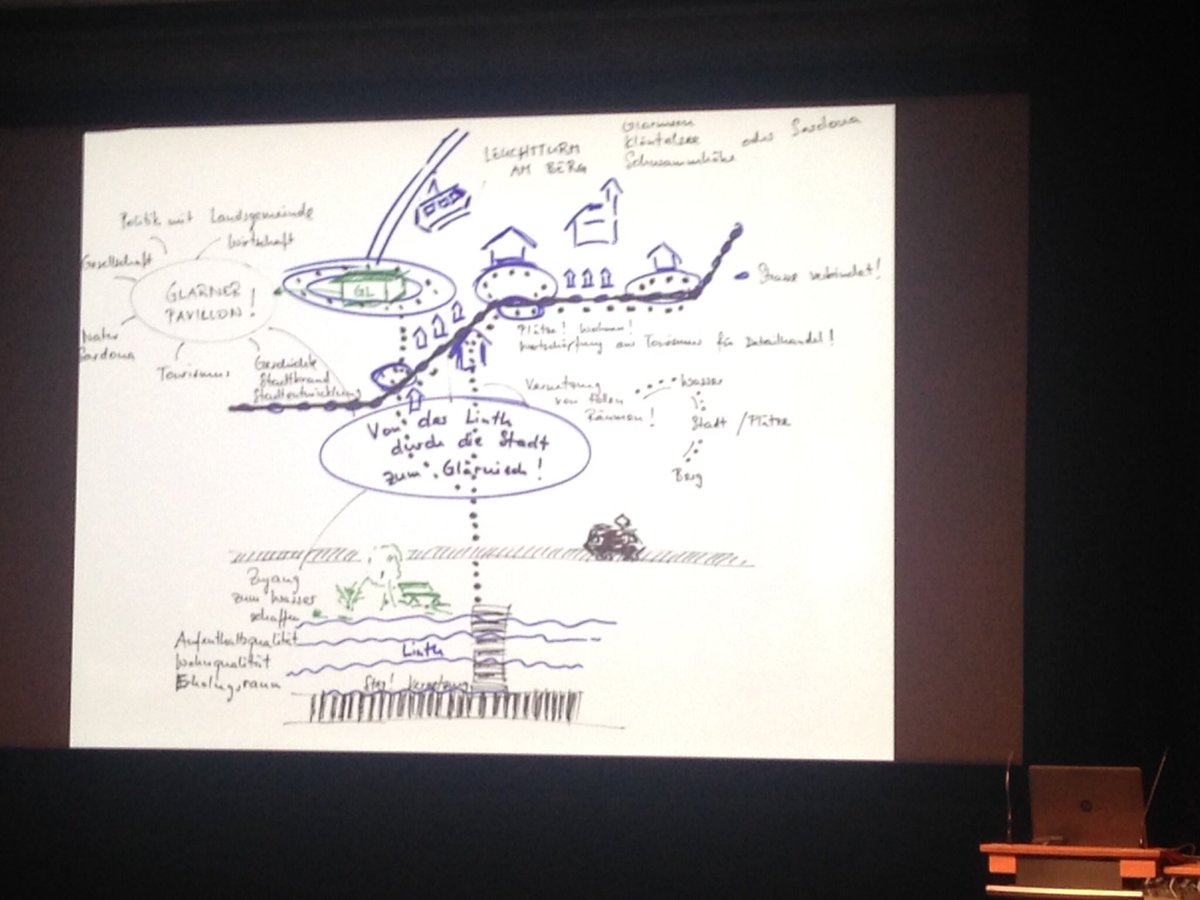 LEUCHTTURM
AM BERG
Klöntalersee oder Sardona
Schwammhöhe
Politik mit Landsgemeinde
Wirtschaft
Gesellschaft
GLARNER
PAVILLON!
Natur
Sardona
Tourismus
Geschichte
Stadtbrand
Stadtentwicklung
GL
Strasse verbindet!
Plätze! Wohnen!
Wertschöpfung aus Tourismus für Detailhandel!
Vernetzung
von
Räumen!
Wasser
Stadt / Plätze
Berg
Von das Linth
durch die Stadt
zum Glärnisch!
Zugang
zum Wasser
schaffen
Aufenthaltsqualität
Wohnqualität
Erholungsraum
Linth
Steg! Vernetzung